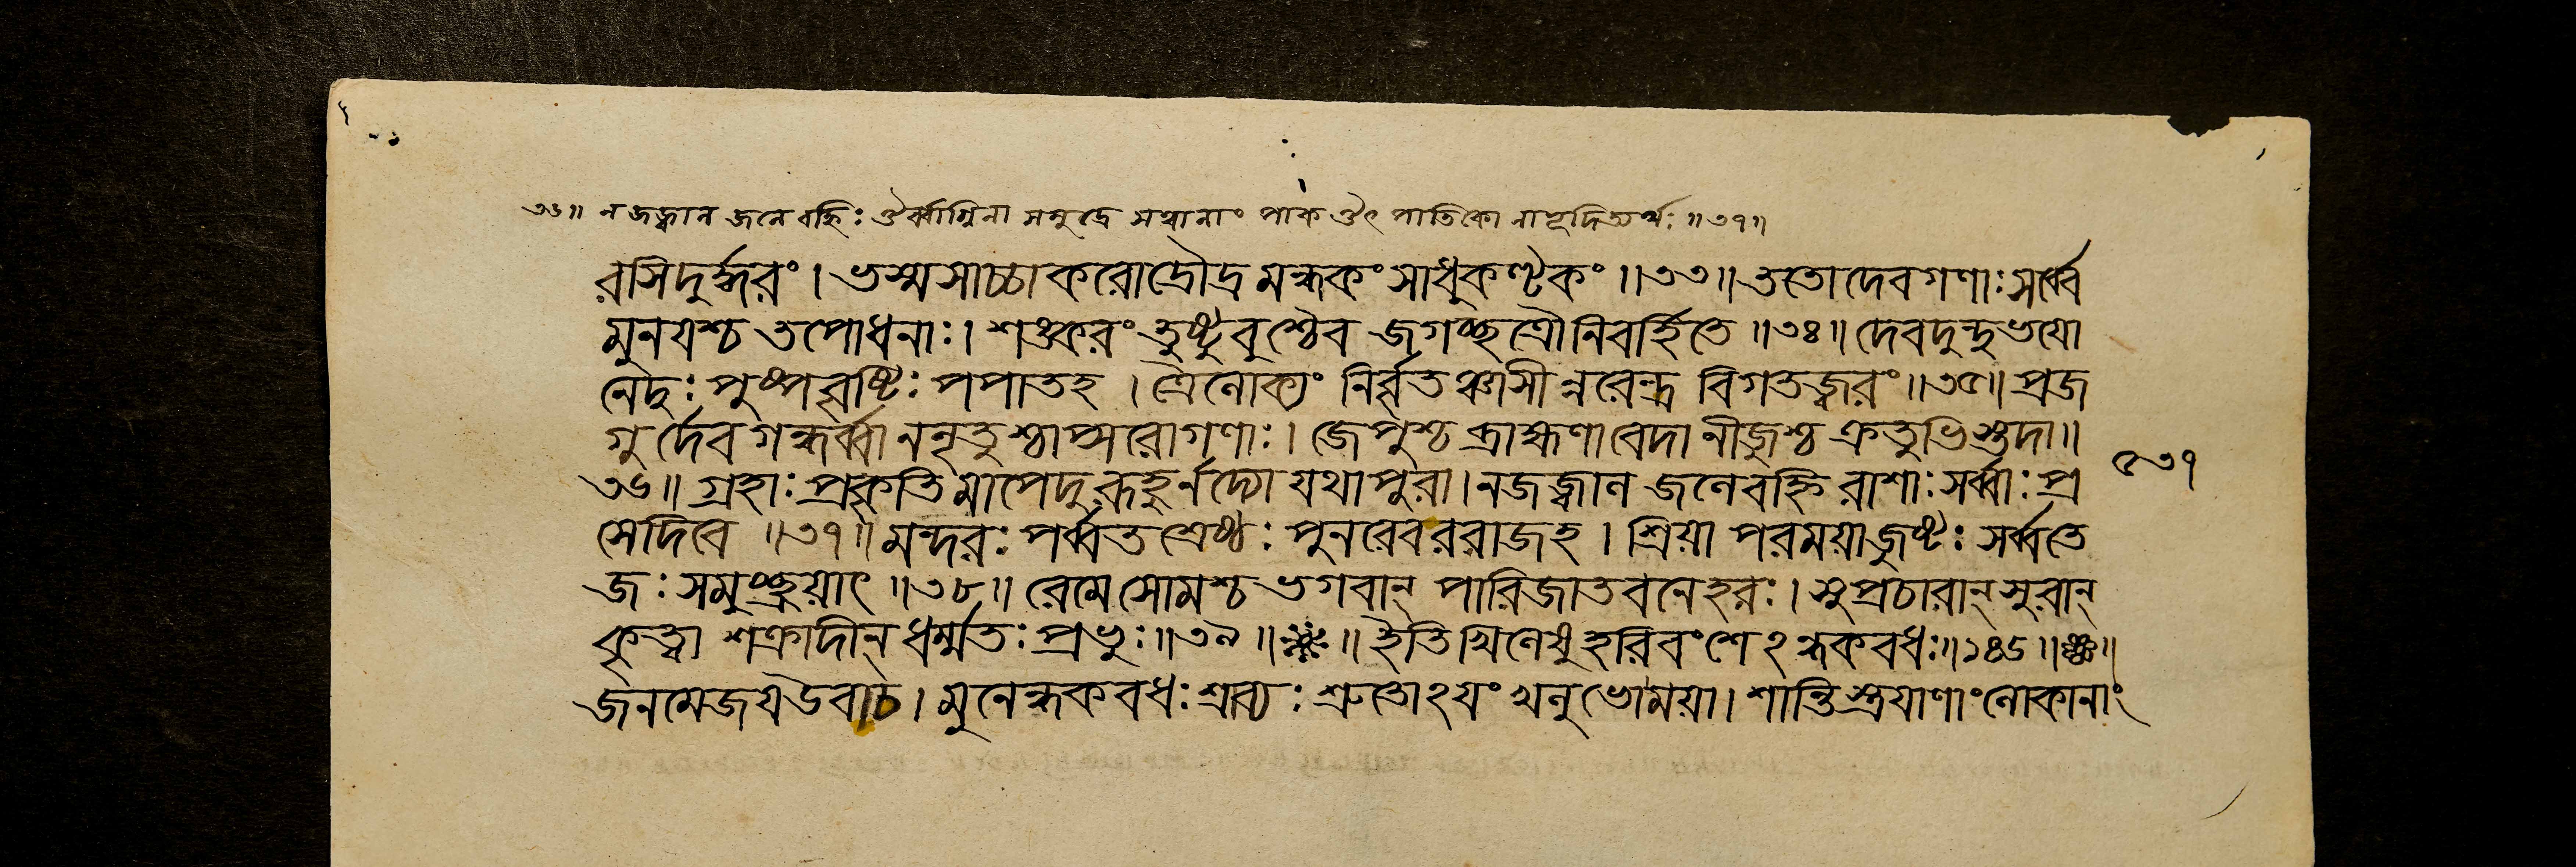 ৩৬॥ ন জজ্বাল জলে বহ্নিঃ ঔর্ব্বাগ্নিনা সমুদ্রে সত্বানাং পাক ঔৎপাতিকো নাভূদিত্যর্থঃ ॥৩৭॥
রসিদুর্দ্ধরং। ভস্মসাচ্চাকরোদ্রৌদ্রমন্ধকং সাধুকণ্টকং॥৩৩॥ ততোদেবগণাঃ সর্ব্বে
মুনয়শ্চ তপোধনাঃ। শঙ্করং তুষ্টুবুশ্চৈব জগচ্ছত্রৌনিবর্হিতে ॥৩৪॥ দেবদুন্দুভয়ো
নেদুঃ পুষ্পবৃষ্টিঃ পপাতহ । ত্রৈলোক্যং নির্বৃতঞ্চাসীন্নরেন্দ্র বিগতজ্বরং॥৩৫॥ প্রজ
গুর্দেবগন্ধর্ব্বাননৃতুশ্চাপ্সরোগণাঃ। জেপুশ্চ ব্রাহ্মণাবেদানীজুশ্চ ক্রতুভিস্তদা॥
৩৬॥ গ্রহাঃ প্রকৃতিমাপেদুরূহুর্নদ্যো যথাপুরা। নজজ্বাল জলেবহ্নিরাশাঃ সর্ব্বাঃ প্র
৫৩৭
সেদিরে ॥৩৭॥ মন্দরঃ পর্ব্বতশ্রেষ্ঠঃ পুনরেবররাজহ । শ্রিয়া পরময়াজুষ্টঃ সর্ব্বতে
জঃ সমুচ্ছ্রয়াৎ ॥৩৮॥ রেমেসোমশ্চ ভগবান্ পারিজাতবনেহরঃ। সুপ্রচারান্ সুরান্
কৃত্বা শক্রাদীন্ ধর্ম্মতঃ প্রভুঃ॥৩৯॥ ॥ ইতিখিলেষু হরিবংশেঽন্ধকবধঃ॥১৪৬॥ ॥
জনমেজয়উবাচ। মুনেন্ধকবধঃ শ্রাব্যঃ শ্রুতোঽয়ং খলুভোময়া। শান্তিস্ত্রয়াণাংলোকানাং